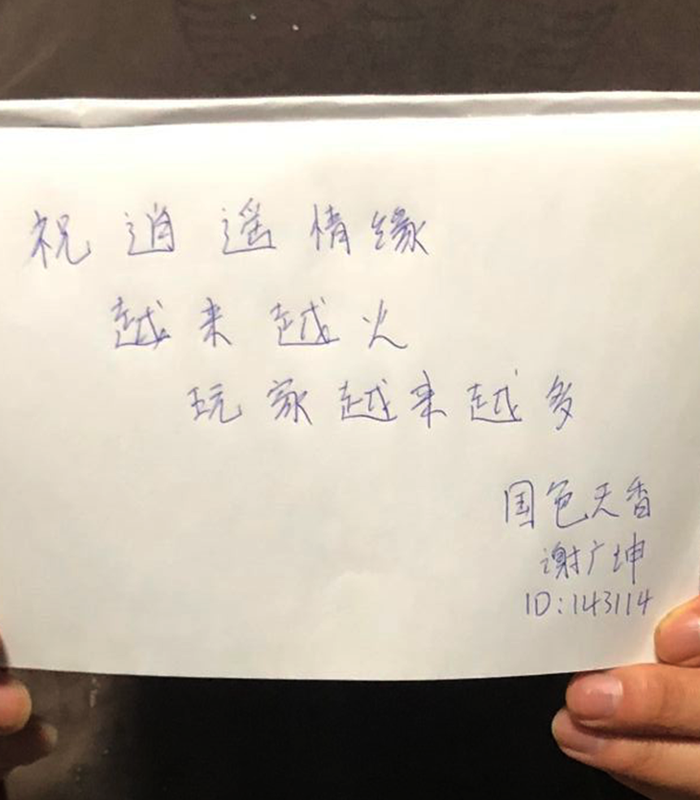 祝逍遥情缘
越来越火
玩家越来越多
国色天香
谢广坤
ID:143114